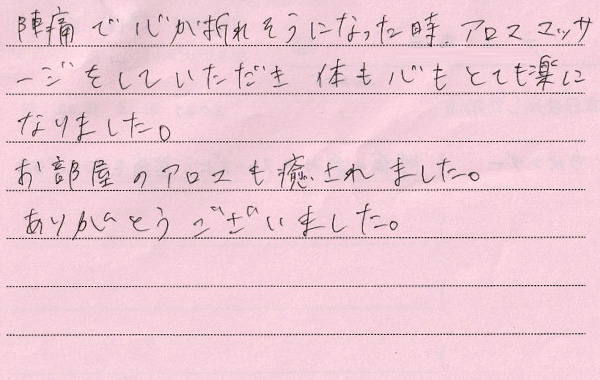 陣痛で心が折れそうになった時、アロママッサ
ージをしていただき 体も心もとても楽に
なりました。
お部屋のアロマも癒されました。
ありがとうございました。